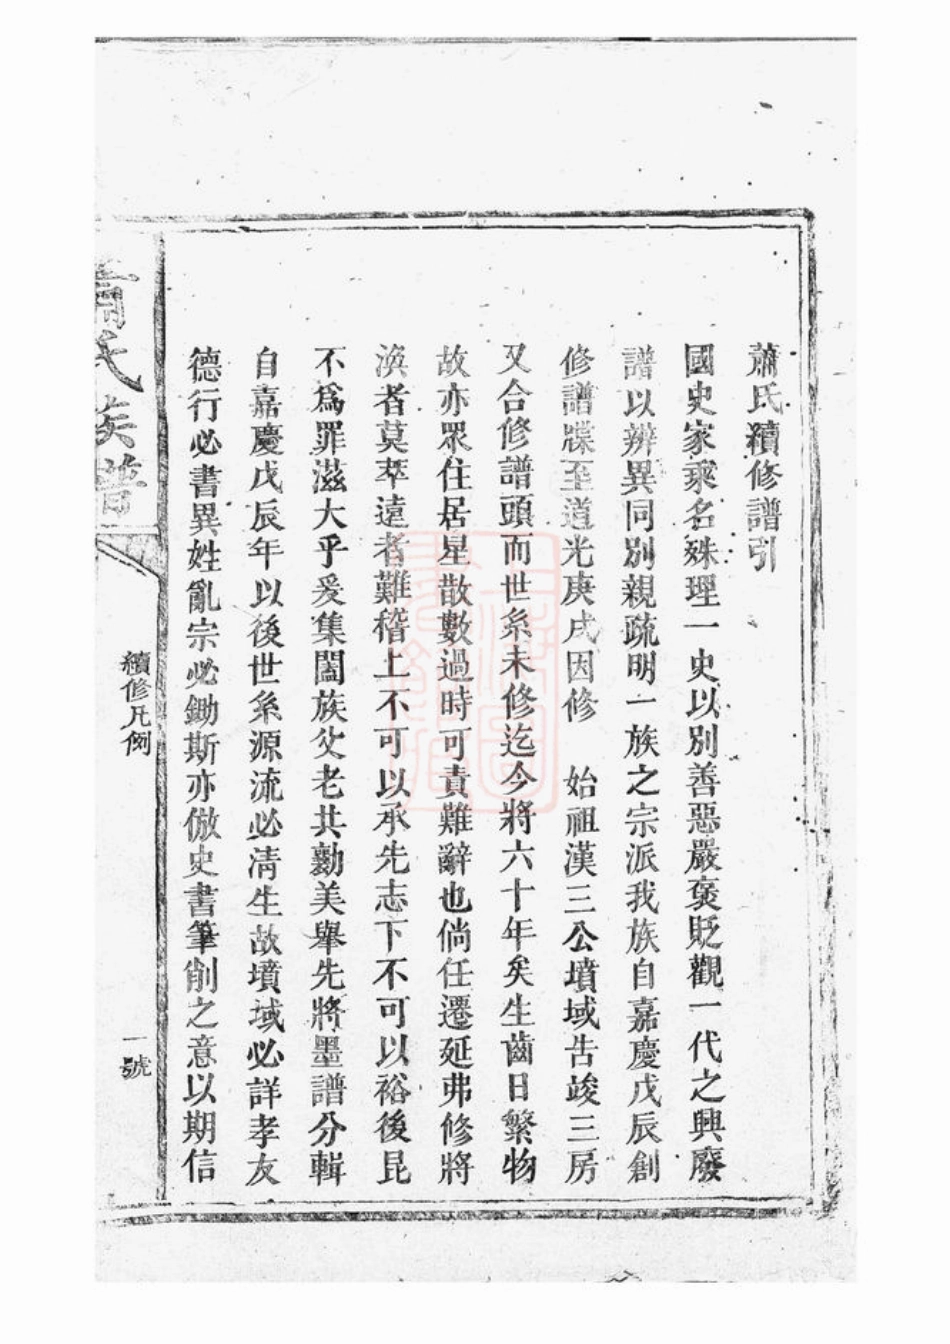 蕭氏續修譜引
國史家乘名殊理一史以別善惡嚴褒貶觀一代之興廢
譜以辨異同別親疏明一族之宗派我族自嘉慶戊辰創
修譜牒至道光庚戌因修　始祖漢三公墳域告竣三房
又合修譜頭而世系未修迄今將六十年矣生齒日繁物
故亦眾住居星散數過時可責難辭也倘任遷延弗修將
渙者莫萃遠者難稽上不可以承先志下不可以裕後昆
不為罪滋大乎爰集闔族父老共勷美舉先將墨譜分輯
自嘉慶戊辰年以後世系源流必清生故墳域必詳孝友
德行必書異姓亂宗必鋤斯亦倣史書筆削之意以期信
蕭氏族譜
續修凡例
一號